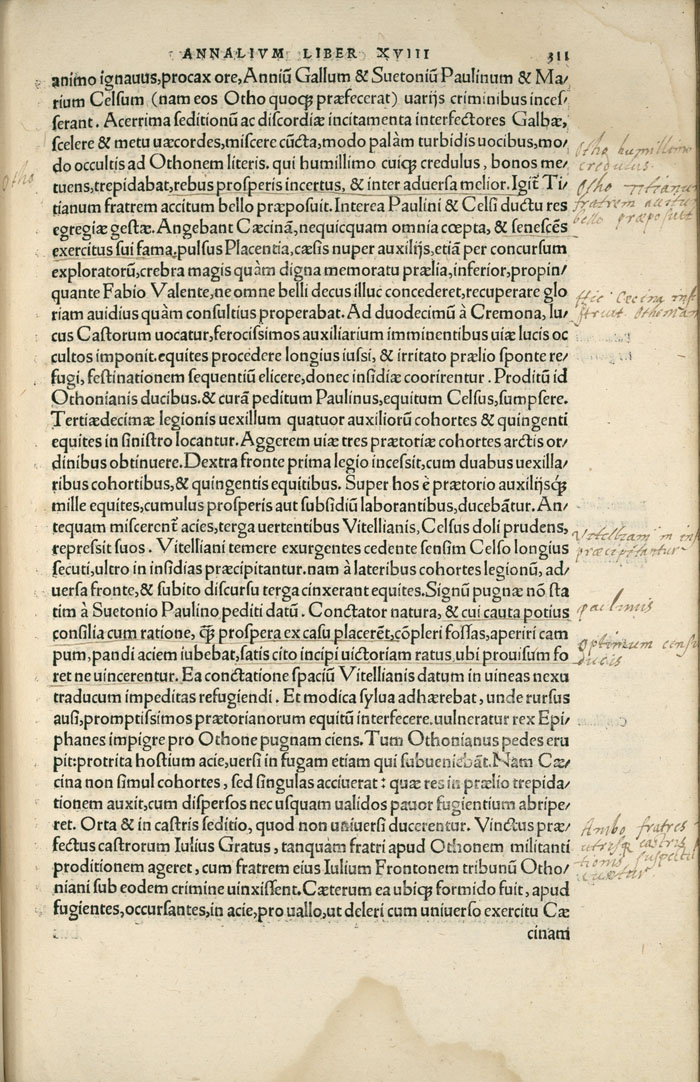 ANNALIVM LIBER XVIII 311
animo ignauus,procax ore,Anniũ Gallum & Suetoniũ Paulinum & Ma/
rium Celsum (nam eos Otho quoq; præfecerat) uarijs criminibus inces/
serant. Acerrima seditionũ ac discordiæ incitamenta interfectores Galbæ,
scelere & metu uæcordes,miscere cũcta,modo palàm turbidis uocibus,mo/
do occultis ad Othonem literis. qui humillimo cuiq; credulus, bonos me/
tuens,trepidabat,rebus prosperis incertus, & inter aduersa melior.Igit̃ Ti/
tianum fratrem accitum bello præposuit.Interea Paulini & Celsi ductu res
egregiæ gestæ. Angebant Cæcinã,nequicquam omnia cœpta, & senescẽs
exercitus sui fama.pulsus Placentia,cæsis nuper auxilijs,etiã per concursum
exploratorũ,crebra magis quàm digna memoratu prælia,inferior,propin/
quante Fabio Valente,ne omne belli decus illuc concederet,recuperare glo
riam auidius quàm consultius properabat. Ad duodecimũ à Cremona, lu/
cus Castorum uocatur,ferocissimos auxiliarium imminentibus uiæ lucis oc
cultos imponit.equites procedere longius iussi, & irritato prælio sponte re/
fugi, festinationem sequentiũ elicere,donec insidiæ coorirentur. Proditũ id
Othonianis ducibus.& curã peditum Paulinus,equitum Celsus,sumpsere.
Tertiædecimæ legionis uexillum quatuor auxiliorũ cohortes & quingenti
equites in sinistro locantur.Aggerem uiæ tres prætoriæ cohortes arctis or/
dinibus obtinuere.Dextra fronte prima legio incessit,cum duabus uexilla/
ribus cohortibus,& quingentis equitibus. Super hos è prætorio auxilijsq;
mille equites,cumulus prosperis aut subsidiũ laborantibus,ducebãtur. An/
tequam miscerent̃ acies,terga uertentibus Vitellianis,Celsus doli prudens,
repressit suos. Vitelliani temere exurgentes cedente sensim Celso longius
secuti,ultro in insidias præcipitantur.nam à lateribus cohortes legionũ, ad/
uersa fronte,& subito discursu terga cinxerant equites.Signũ pugnæ nõ sta
tim à Suetonio Paulino pediti datũ. Conctator natura, & cui cauta potius
consilia cum ratione, q̃; prospera ex casu placerẽt,cõpleri fossas,aperiri cam
pum,pandi aciem iubebat,satis cito incipi uictoriam ratus,ubi prouisum fo
ret ne uincerentur. Ea conctatione spaciũ Vitellianis datum in uineas nexu
traducum impeditas refugiendi. Et modica sylua adhærebat, unde rursus
ausi,promptissimos prætorianorum equitũ interfecere.uulneratur rex Epi/
phanes impigre pro Othone pugnam ciens. Tum Othonianus pedes eru
pit:protrita hostium acie,uersi in fugam etiam qui subueniebãt.Nam Cæ/
cina non simul cohortes, sed singulas acciuerat: quæ res in prælio trepida/
tionem auxit,cum dispersos nec usquam ualidos pauor fugientium abripe/
ret. Orta & in castris seditio, quod non uniuersi ducerentur. Vinctus præ/
fectus castrorum Iulius Gratus, tanquam fratri apud Othonem militanti
proditionem ageret, cum fratrem eius Iulium Frontonem tribunũ Otho/
niani sub eodem crimine uinxissent.Cæterum ea ubiq; formido fuit, apud
fugientes,occursantes,in acie,pro uallo,ut deleri cum uniuerso exercitu Cæ
cinam
Otho
Otho humillimo
credulus
Otho Titianum
fratrem
bello præposuit
Hic Cæcina
Vitelliani in
præcipitantur
paulinus
optimum
ducis
Ambo fratres